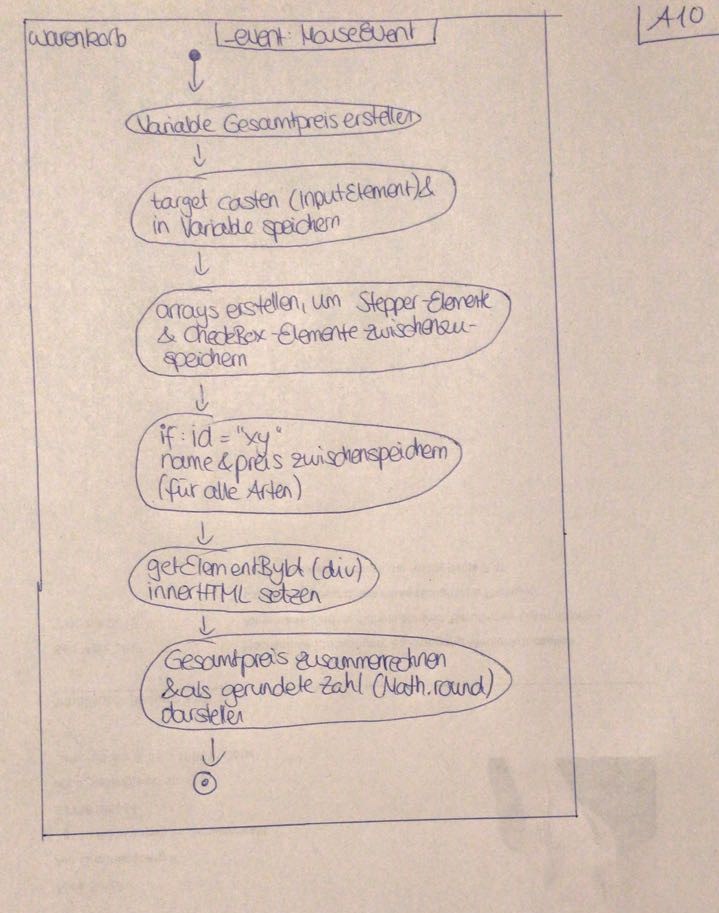 A10
warenkorb
_event: MouseEvent
Variable Gesamtpreis erstellen
target casten (InputElement) &
in Variable speichern
arrays erstellen, um Stepper-Elemente
& CheckBox-Elemente zwischenzu-
speichern
if: id = "xy"
name & preis zwischenspeichern
(für alle Arten)
getElementById (div)
innerHTML setzen
Gesamtpreis zusammenrechnen
& als gerundete Zahl (Math.round)
darstellen